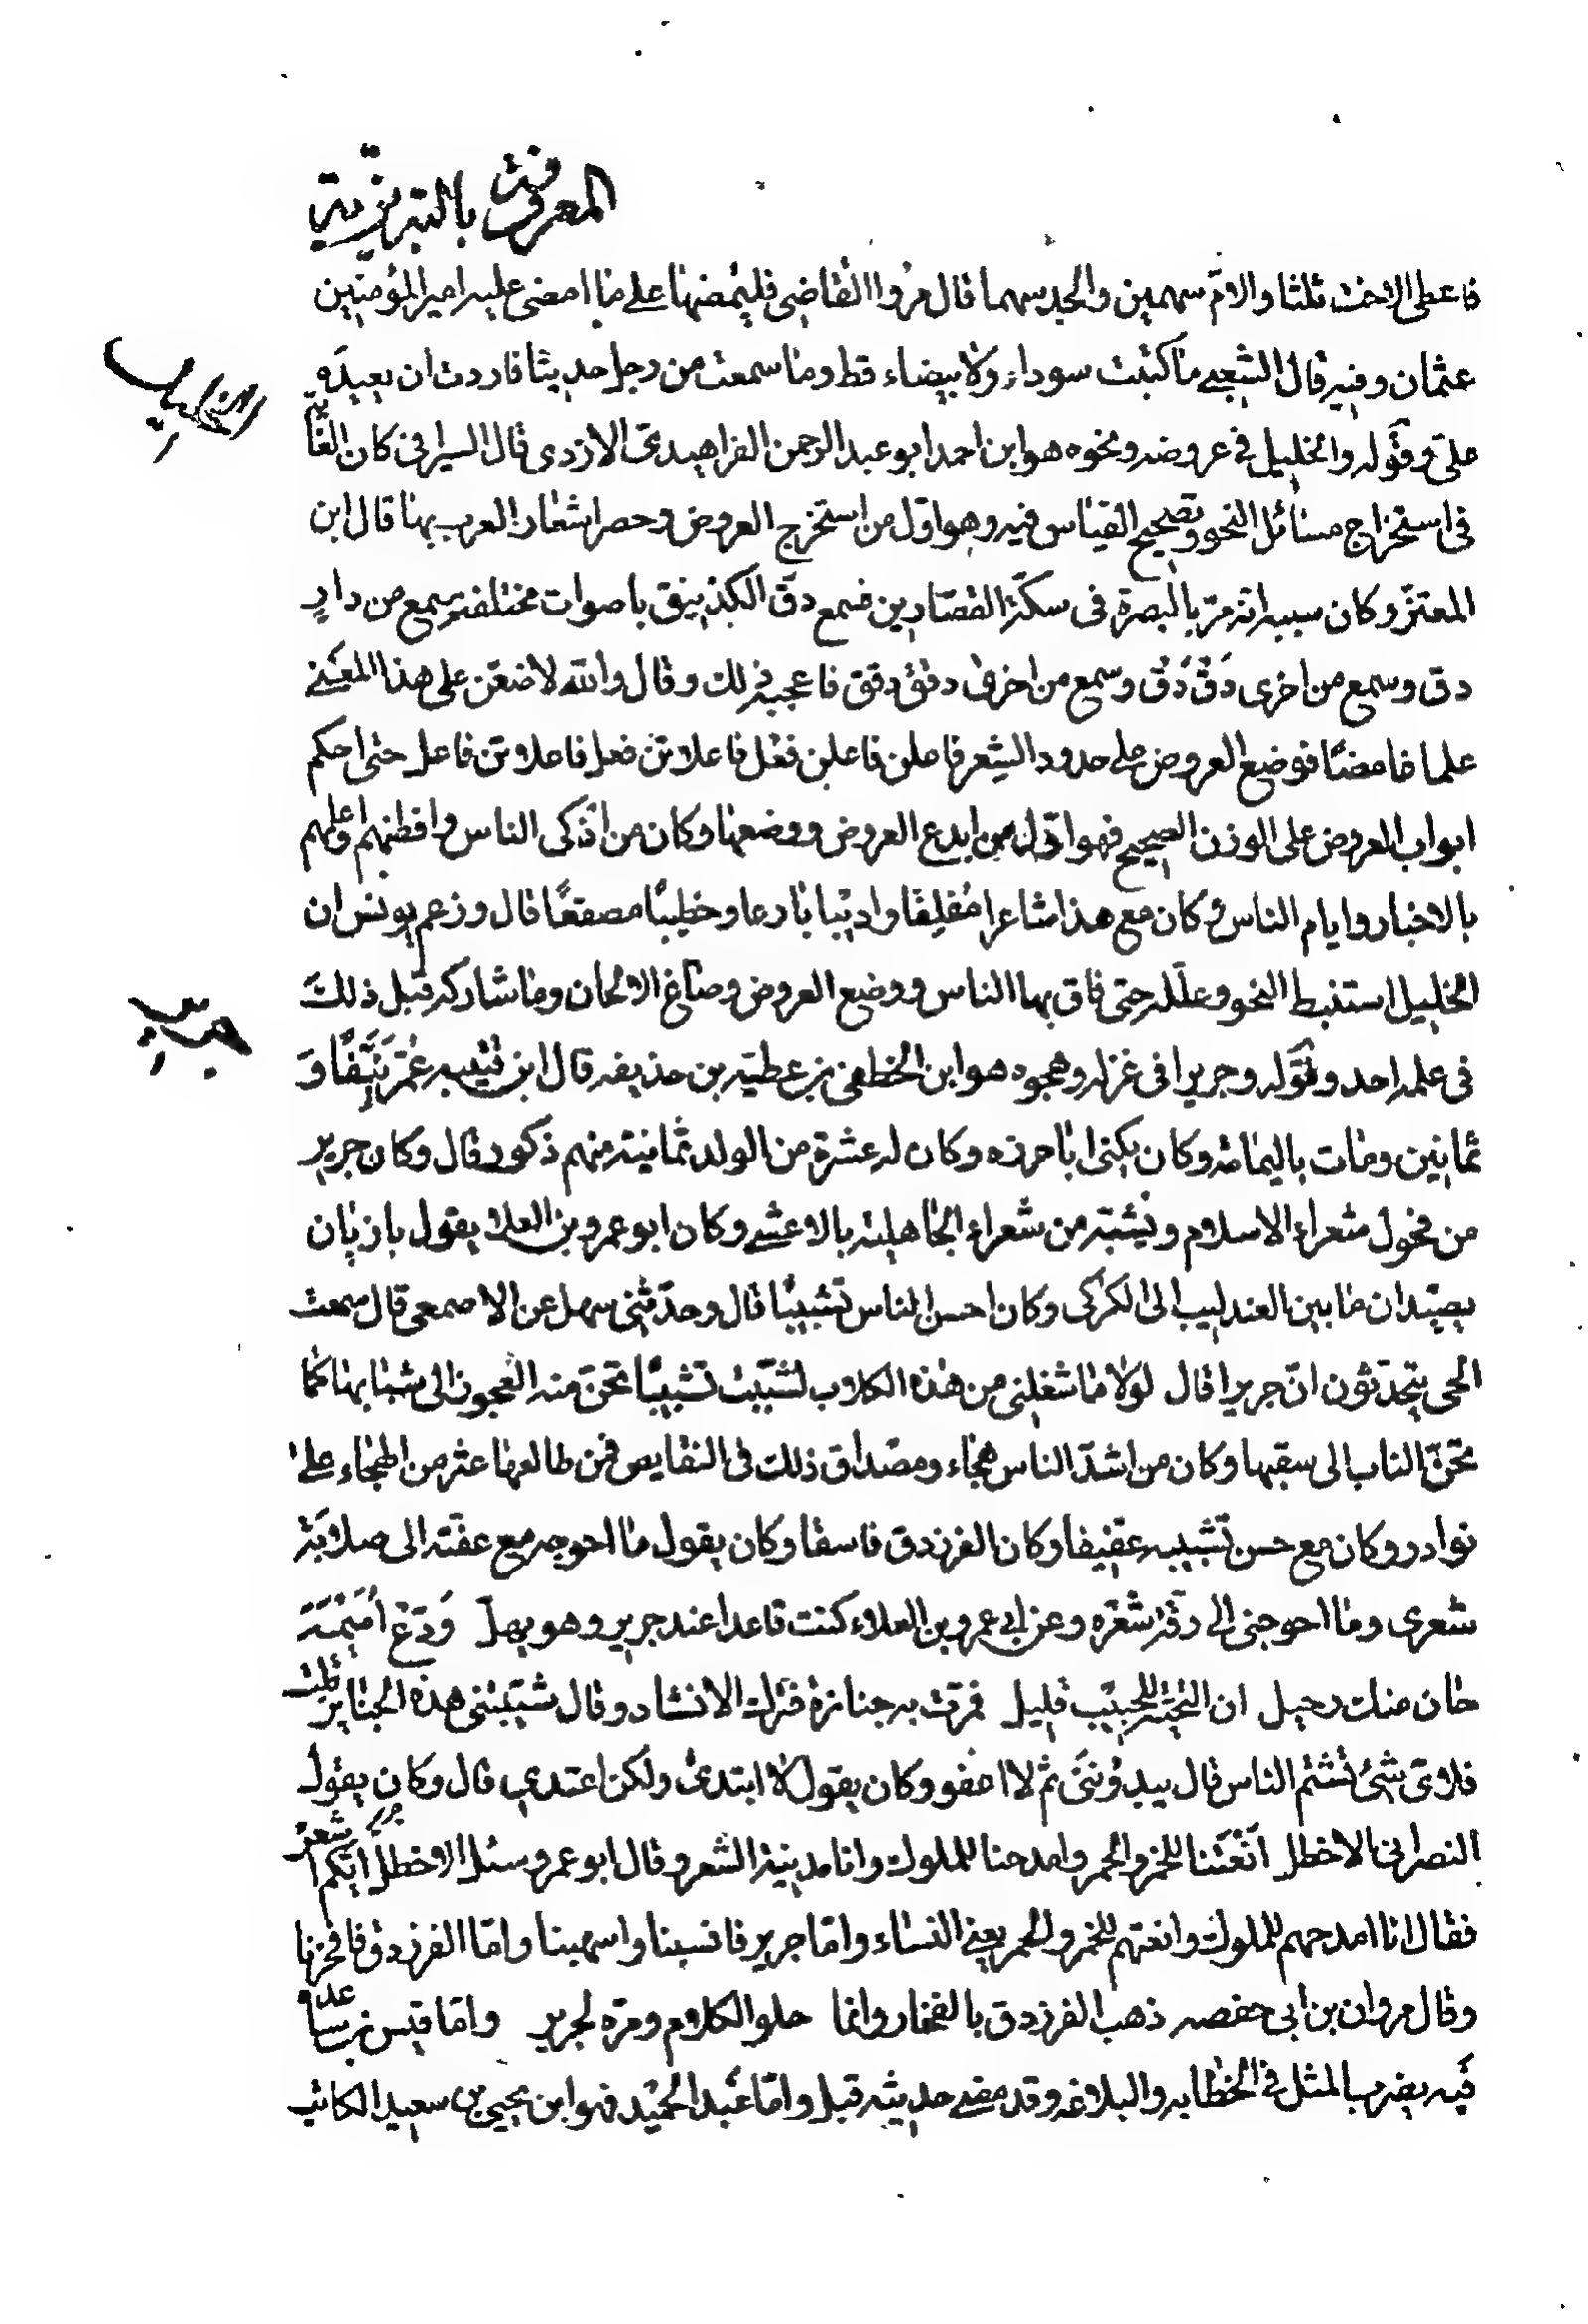 المعروفة بالتبريزية
فاعطى الاخت ثلثا والامّ سهمين والجد سهما قال مروا القاضى فليمضها على ما امضى عليه امير المؤمنين
عثمان وفيه قال الشعبى ما كتبت سوداء ولا بيضاء قط وما سمعت من رجل حديثا فاردت ان يعيده
الخليل
علىّ وقوله والخليل فى عروضه ونحوه هو ابن احمد ابو عبد الرحمن الفراهيدىّ الازدى قال السيرافى كان الغاية
فى استخراج مسائل النحو وتصحيح القياس فيه وهو اول من استخرج العروض وحصر اشعار العرب بها قال ابن
المعتز وكان سببه انه مرّ بالبصرة فى سكة القصّارين فسمع دق الكذينق باصوات مختلفة سمع من دارٍ
دق وسمع من اخرى دَقْ دَقْ وسمع من اخرى دقق دقق فاعجبه ذلك وقال والله لاضعن على هذا المعنى
علما غامضًا فوضع العروض على حدود الشعر فاعلن فاعلن فعل فاعلاتن فعل فاعلاتن فاعل حتى احكم
ابواب العروض على الوزن الصحيح فهو اوّل من ابدع العروض ووضعها وكان من اذكى الناس وافطنهم واعلمهم
بالاخبار وايام الناس وكان مع هذا شاعرا مُفلِقًا واديبا بارعا وخطيبًا مصقعًا قال وزعم يونس ان
الخليل استنبط النحو وعلله حتى فاق بها الناس ووضع العروض وصاغ الالحان وما شاركه قبل ذلك
جرير
فى علمه احد وقوله وجريرا فى غزله وهجوه هو ابن الخطفى بن عطيه بن حذيفه قال ابن قتيبه عُمّر نَيِّفًا وَ
ثمانين ومات باليمامة وكان يكنى ابا حرزه وكان له عشرة من الولد ثمانية منهم ذكور قال وكان جرير
من فحول شعراء الاسلام ويشبّه من شعراء الجاهلية بالاعشى وكان ابو عمرو بن العلاء يقول بازيان
يصيدان ما بين العندليب الى الكركى وكان احسن الناس تشبيبًا قال وحدّثنى سهل عن الاصمعى قال سمعت
الحى يتحدثون انّ جريرا قال لولا ما شغلنى من هذه الكلاب لشبّبت تشبيبًا تحنّ منه العجوز الى شبابها كما
تحنّ الناب الى سقبها وكان من اشدّ الناس هجاء ومصداق ذلك فى النقايض فمن طالعها عثر من الهجاء على
نوادر وكان مع حسن تشبيبه عفيفا وكان الفرزدق فاسقا وكان يقول ما احوجه مع عفّته الى صلابة
شعرى وما احوجنى الى رقّة شعره وعن ابى عمرو بن العلاء كنت قاعدا عند جرير وهو يملّ وَدّعْ اُمَيْمَة
حان منك رحيل ان التحية للحبيب قليل فمرّت به جنازة فترك الانشاد وقال شيّبتنى هذه الجنايز قلت
فلاىّ شىء تشتم الناس قال يبدؤننى ثم لا اعفو وكان يقول لا ابتدى ولكن اعتدى قال وكان يقول
النصرانى الاخطل انعتنا للخمر والحمر وامدحنا للملوك وانا مدينة الشعر وقال ابو عمرو سئل الاخطل ايّكم اشعر
فقال انا امدحهم للملوك وانعتهم للخمر والحمر يعنى النساء وامّا جرير فانسبنا واسهبنا وامّا الفرزدق فافخرنا
وقال مروان بن ابى حفصه ذهب الفرزدق بالفخار وانما حلو الكلام ومرّه لجرير وامّا قيس بن ساعده
فبه يضرب المثل فى الخطابه والبلاغه وقد مضى حديثه قبل وامّا عبد الحميد فهو ابن يحيى بن سعيد الكاتب